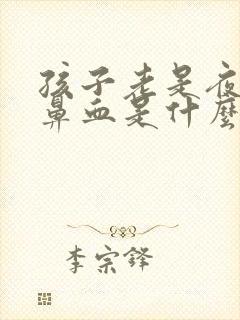 孩子老是夜
鼻血是什麼
李宗鋒